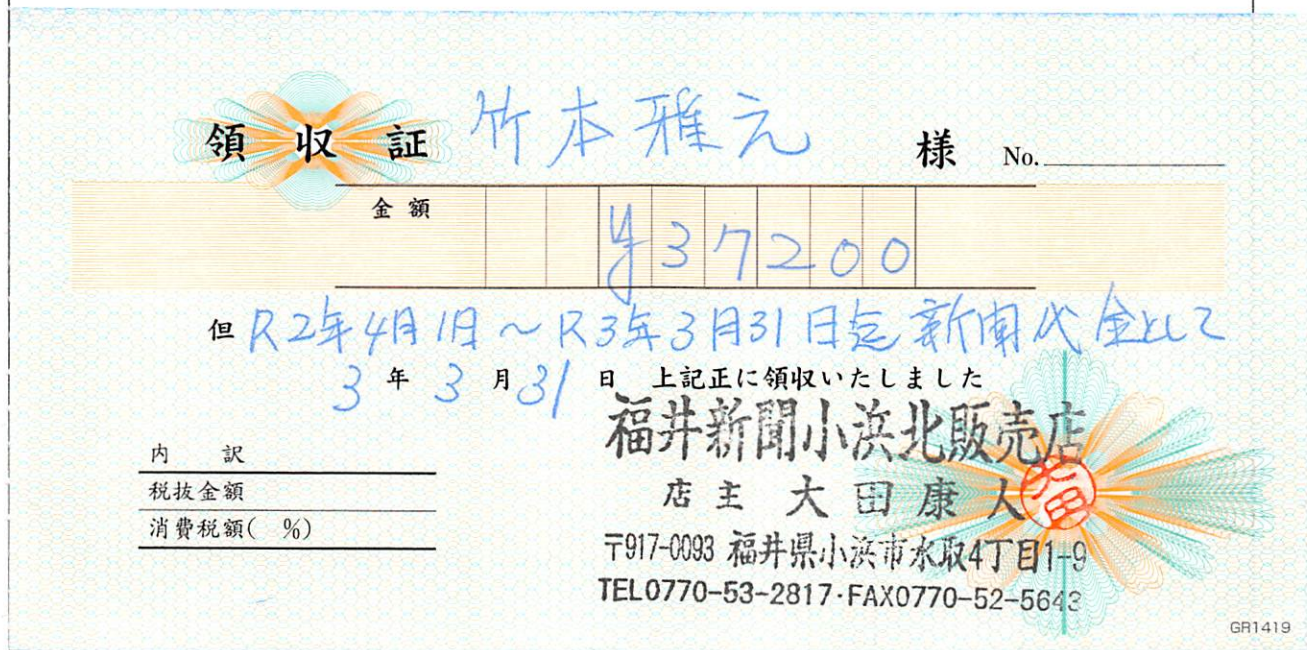 領収証 竹本雅元 様 No.
金額 ¥37200
但 R2年4月1日～R3年3月31日迄 新聞代金として
3年3月31日 上記正に領収いたしました
福井新聞小浜北販売店
店主 大田康人 大田
〒917-0093 福井県小浜市水取4丁目1-9
TEL0770-53-2817・FAX0770-52-5643
内訳
税抜金額
消費税額( %)
GR1419